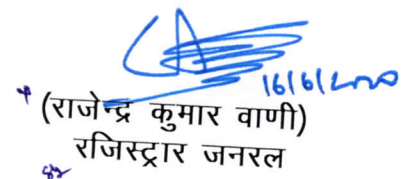 16/6/2020
(राजेन्द्र कुमार वाणी)
रजिस्ट्रार जनरल